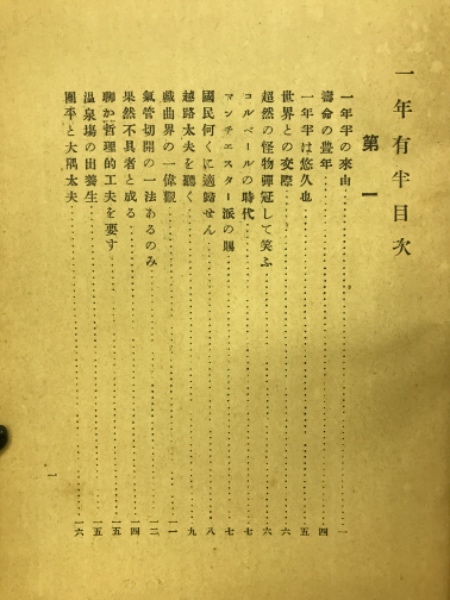 一年有半目次
第一
一年半の來由……一
壽命の豊年……四
一年半は悠久也……五
世界との交際……六
超然の怪物彈冠して笑ふ……六
コルベールの時代……七
マンチエスター派の賜……七
國民何くに適歸せん……八
越路太夫を聽く……九
戯曲界の一偉觀……一一
氣管切開の一法あるのみ……一二
果然不具者と成る……一四
聊か哲理的工夫を要す……一五
温泉塲の出養生……一五
團平と大隅太夫……一六
一